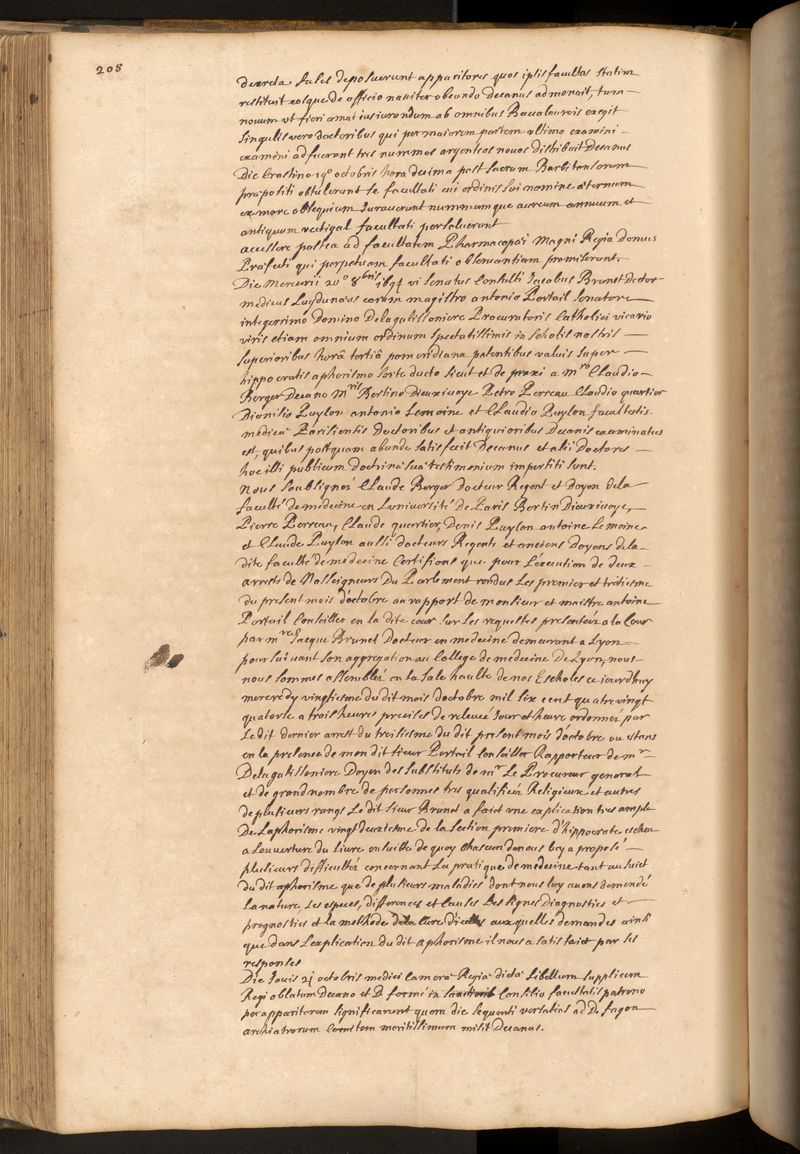 208
decreta sules deposuerunt apparitores quos ipsis facultas statim
restituit eosque de officio naviter obeundo Decanus admonuit, tum
novum ut fieri amat iusiurandum ab omnibus Baccalaureis exegit
singulis vero doctoribus qui per maiorem partem ultimo examini
examini adfuerant tres nummos argenteos novos distribuit Decanus
Die Crastino 19º octobris hora decima post sacrum Barbitonsorum
præpositi obtulerunt se facultati cui ordinis sui nomine æternum
ex more obsequium Iuraverunt nummumque aureum annuum et
antiquum vectigal facultati persolverunt
accessere postea ad facultatem Pharmacopœi Magni Regiæ Domus
Præfecti qui perpetuam facultati observantiam promiserunt.
Die Mercurii 20º 8bris 1694 vi senatus Consulti Jacobus Brunet doctor
medicus Lugdunæus coram magistro antonio Portail senatore
integerrimo Domino Delagalissoniere Procuratoris Catholici vicario
viris etiam omnium ordinum spectatissimis in scholis nostris
superioribus horâ tertiâ pomeridiana patentibus valvis super
hippocratis aphorismo sorte ducto sicut et de praxi a Mro Claudio
Berger Decano Mris Bertino Dieuxivoye Petro Perreau Claudio quartier
Dionisio Puylon antonio Lemoine et Claudio Puylon facultatis
medicæ Parisiensis doctoribus et antiquioribus Decanis examinatus
est, quibus postquam abunde satisfecit Decanus et alii Doctores
hoc illi publicum doctrinæ suæ testimonium impertiti sunt.
Nous soubsignez Claude Berger docteur Regent et Doyen de la
faculté de medecine en Luniversité de Paris Bertin Dieuxivoye,
Pierre Perreau, Claude quartier, Denis Puylon antoine Lemoine
et Claude Puylon aussi docteurs Regents et anciens Doyens de la
dite faculté de medecine Certifions que pour L'execution de deux
arrests de Nosseigneurs Du Parlement rendus Les premier et treisiesme
du present mois d'octobre au rapport de monsieur et maistre antoine
Portail Conseiller en la dite cour sur les requestes presentées a la Cour
par mre Jacque Brunet Docteur en medecine demeurant a Lyon
poursuivant son aggregation au College de medecine de Lyon, nous
nous sommes assemblés en la sale haulte de nos Escholes ce jourdhuy
mercredy vingtiesme du dit mois doctobre mil six cent quatre vingt
quatorse a trois heures precises de relevée Jour et heure ordonnez par
Le dit dernier arrest du treisisme du dit present mois d'octobre ou estans
en la presence de mon dit sieur Portail Conseiller Rapporteur de mr
Delagalissoniere Doyen des substituts de mr Le Procureur general
et de grand nombre de personnes tres qualifiées Religieux et autres
de plusieurs rangs Le dit sieur Brunet a faict une explication tres ample
De Laphorisme vingt deuxiesme de la section premiere d'hippocrate escheu
a Louverture du Livre en suite de quoy chascun de nous luy a proposé
plusieurs difficultés concernant La pratique de medecine tant au suiet
du dit aphorisme que de plusieurs maladies dont nous luy avons demandé
la nature, Les especes, differences et causes Les signes Diagnostics et
prognostics et la methode de la cure d'icelles auxquelles demandes ainsi
que dans L'explication du dit aphorisme il nous a satisfaict par ses
responses
Die Jovis 21 octobris medici Cameræ Regiæ dictæ Libellum supplicem
Regi oblatum Decano et D formé in Consilio facultatis patrono
per apparitorem significarunt quem die sequenti versalias ad D. fagon
archiatrorum Comitem meritissimum misit Decanus.